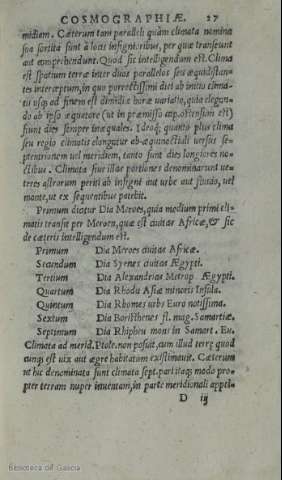 COSMOGRAPHIÆ. 27
midiam. Cæterum tam paralleli quàm climata nomina
sua sortita sunt à locis insignioribus, per quæ transeunt
aut comprehendunt. Quod sic intelligendum est. Clima
est spatium terræ inter duos parallelos seu æquidistan-
tes interceptum, in quo porrectissimi diei ab initio clima-
tis usq; ad finem est dimidiæ horæ variatio, quia elegan-
do ab ipso æquatore (ut in præmisso cap. ostensum est)
fiunt dies semper inæquales. Ideoq; quanto plus clima
seu regio climatis elongatur ab æquinoctiali versus se-
ptentrionem vel meridiem, tanto sunt dies longiores no-
ctibus. Climata sive illæ portiones denominarunt ue-
teres astrorum periti ab insigni aut urbe aut fluvio, vel
monte, ut ex sequentibus patebit.
Primum dicitur Dia Meroes, quia medium primi cli-
matis transit per Meroen, quæ est ciuitas Africæ, & sic
de cæteris intelligendum est.
Primum Dia Meroes ciuitas Africæ.
Secundum Dia Syenes ciuitas Ægypti.
Tertium Dia Alexandrias Metrop. Ægypti.
Quartum Dia Rhodu Asiæ minoris Insula.
Quintum Dia Rhomes urbs Euro notissima.
Sextum Dia Boristhenes fl. mag. Samartiæ.
Septimum Dia Rhipheu mons in Samart. Eu.
Climata ad merid. Ptole. non posuit, cum illud terræ quod
cunq; est uix aut ægre habitatum existimauit. Cæterum
ut huc denominata sunt climata sept. pariitaq; modo pro-
pter terram nuper inuentam, in parte meridionali appel-
D iij
Biblioteca de Galicia